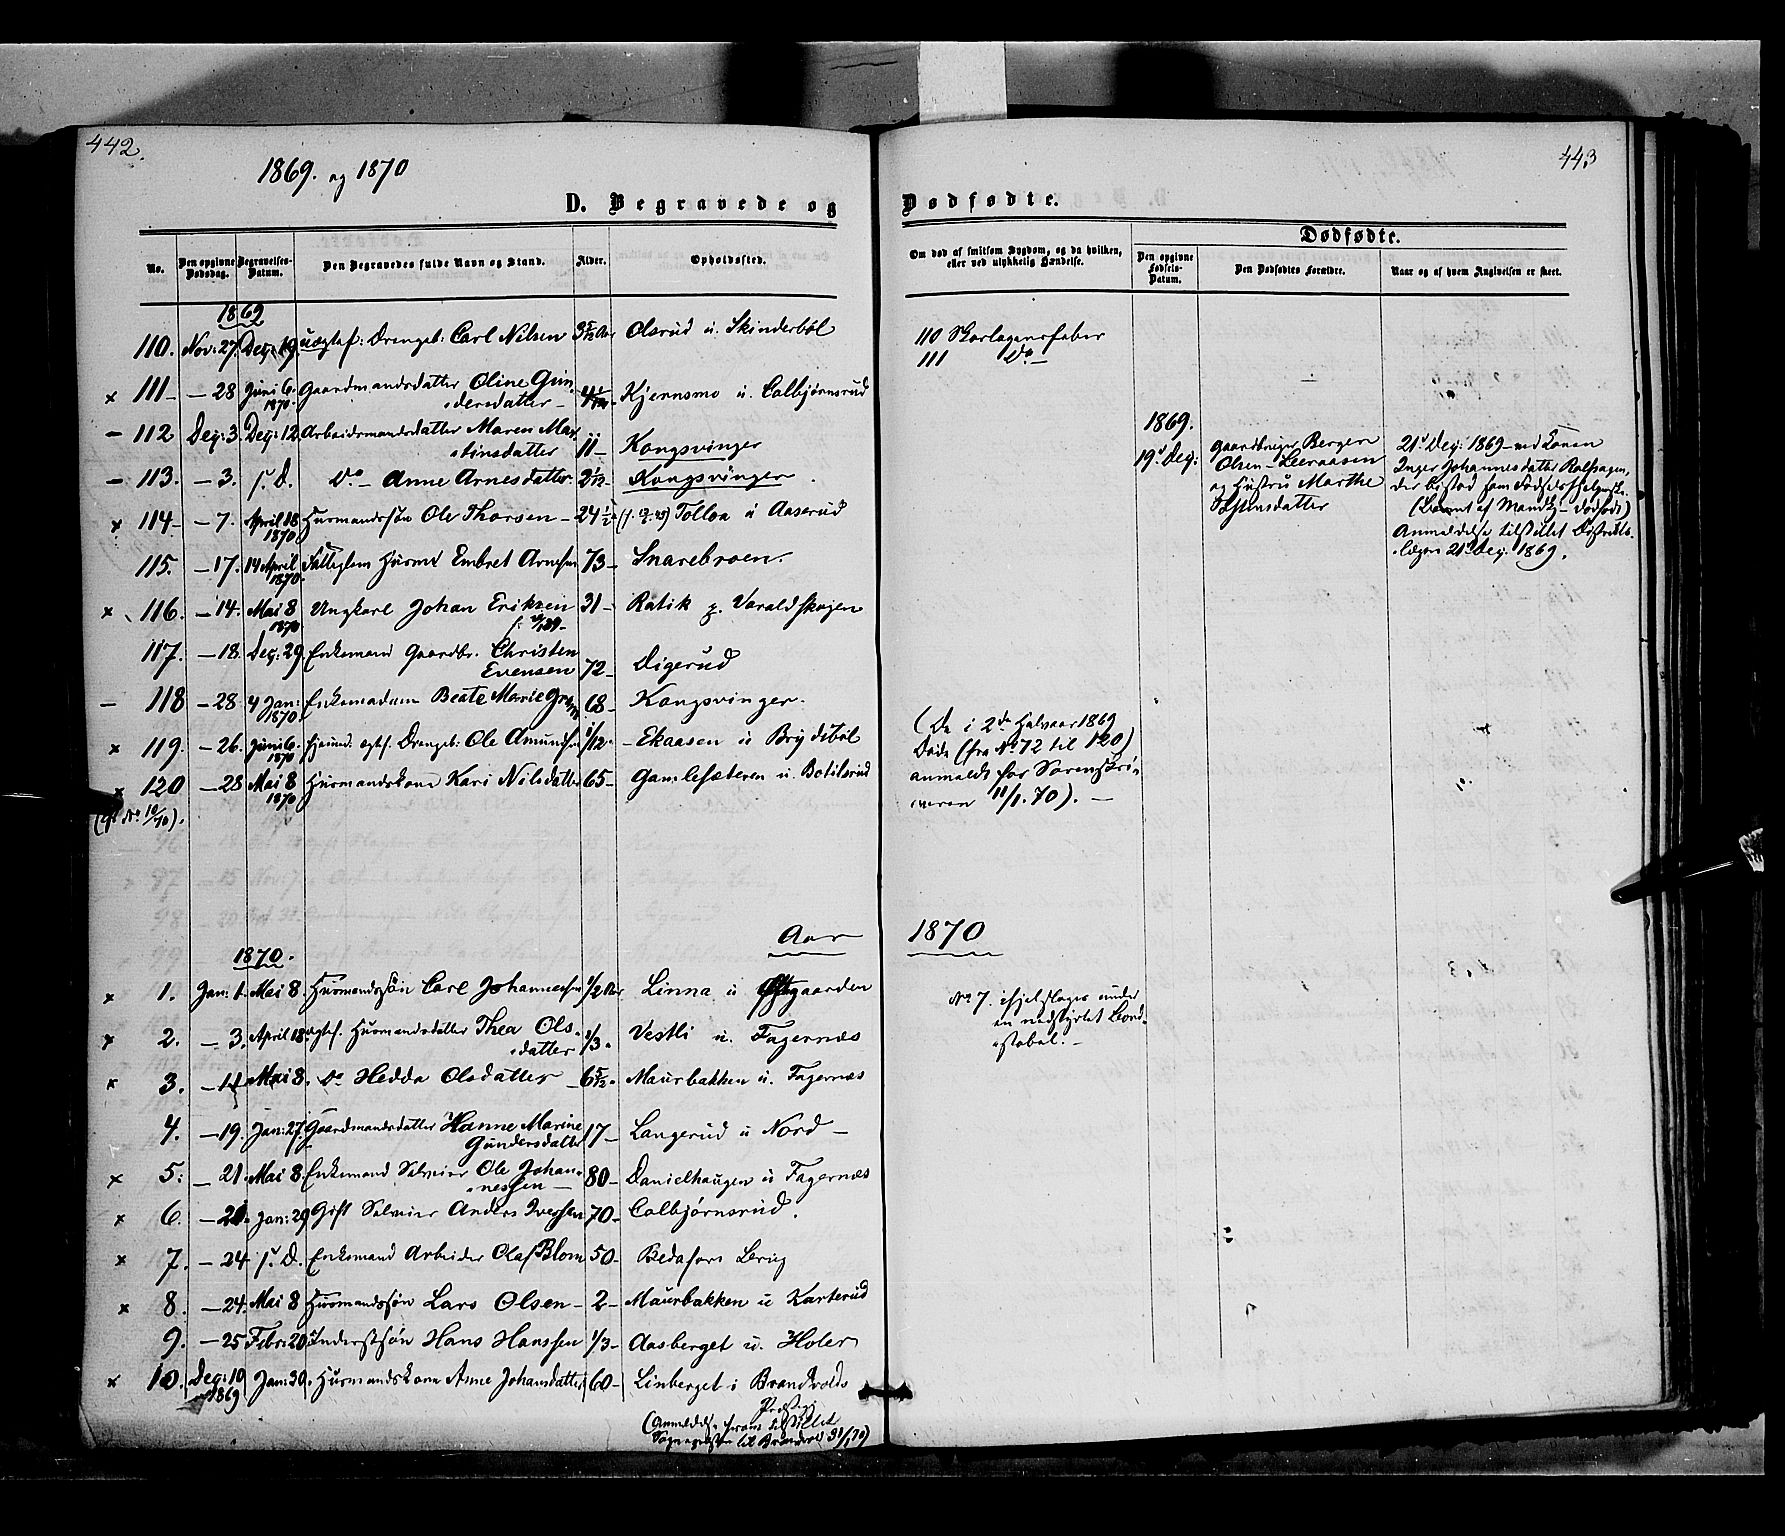 442.
1869. og 1870
D. Begravede og
No.
Den opgivne Dødsdag.
Begravelses-Datum.
Den Begravedes fulde Navn og Stand.
Alder.
Opholdssted.
1869
110. Nov: 27. Dec: 19. uægtef: Drengeb: Carl Nilsen 3 5/12 Aar Olsrud u. Skinderböl
x 111 - 28 Juni 6. 1870. Gaardmandsdatter Oline Gun-
dersdatter - Kjernsmo u. Colbjørnsrud
- 112 Deç: 3. Deç: 12 Arbeidsmandsdatter Maren Mar-
tinsdatter 11 - Kongsvinger
- 113. - 3. s. D. do - Anne Arnesdatter 2 1/12 - Kongsvinger
x 114 - - 7. April 18 1870 Husmandssøn Ole Thorsen - 24 1/2 Tolløa u Aaserud
115. - 17. 14 April 1870. Fattiglem Husmd Embret Arnesen 73 - Snarebroen.
x 116 - 14. Mai 8 1870 Ungkarl Johan Eriksen 31 - Ratik p. Varaldskogen
117. - 18. Deç: 29 Enkemand Gaardbr. Christen
Evensen 72 - Digerud
- 118 - 28 4 Jan: 1870 Enkemadam Beate Marie 68 - Kongsvinger.
x 119. - 26. Juni 6. 1870 ægtf. Drengeb: Ole Amundsen 1/12 - Ekaasen u Brydsböl
x 120 - 28 Mai 8 1870 Husmandskone Kari Nilsdatter 65 - Gamlesæteren u. Botilsrud
(No 10/70).
Aar
1870.
x 1. Jan: 1. Mai 8. Husmandssøn Carl Johannessen 1/2 Aar Linna u gaarden
x 2. - 3. April 18. ægtef. Husmandsdatter Thea Ols-
datter 1/3 - Vestli u. Fagernæs
x 3. - 11 Mai 8. do Hedda Olsdatter - 6 5/12 - Maurbakken u. Fagernæs
4. - 19. Jan: 27. Gaardmandsdatter Hanne Marine
Gundersdatter 17 - Langerud u Nord -
x 5. - 21. Mai 8. Enkemand Selveier Ole Johan-
nessen - 80 - Danielhaugen u Fagernæs
x 6. - Jan: 29 Gift Selveier Anders Iversen 70 - Colbjørnsrud.
x 7. - 24 s. D. Enkemand Arbeider Olaf Blom 50 -
x 8. - 24. Mai 8 Husmandssøn Lars Olsen - 2 - Maurbakken u Karterud
9. - 25 Febr: 20 Inderstsøn Hans Hanssen 1/3 - Aasberget u. Holer
x 10. Deç: 10 1869 Jan: 30. Husmandskone Anne Johansdatter 60 - Linberget i Brandvolds
Præstegj.
til
Sognepresten til Brandvold 31/1 70)
443
Dødfødte.
Om død af smitsom Sygdom, og da hvilken,
eller ved ulykkelig Hændelse.
Dødfødte.
Den opgivne Fødsels-Datum.
Den Dødfødtes Forældre.
Naar og af hvem Angivelsen er skeet.
110 Skarlagensfeber
111 do -
1869.
19. Deç:
Gaardbruger Bergen
Olsen - Leeraasen
og Hustru Marthe
datter
21 Deç: 1869 - ved Konen
Inger Johannesdatter Rolfhagen,
der bistod som
(Barnet af Mandkj - dødfødt)
Anmeldelse tilstillet Distrikts-
lægen 21 Deç. 1869.
(De i 2det Halvaar 1869
Døde (fra No 72 til 120)
anmeldt for Sorenskri-
veren 11/1. 70). -
1870
No 7. ihjelslagen under
en nedstyrtet
stabel. -